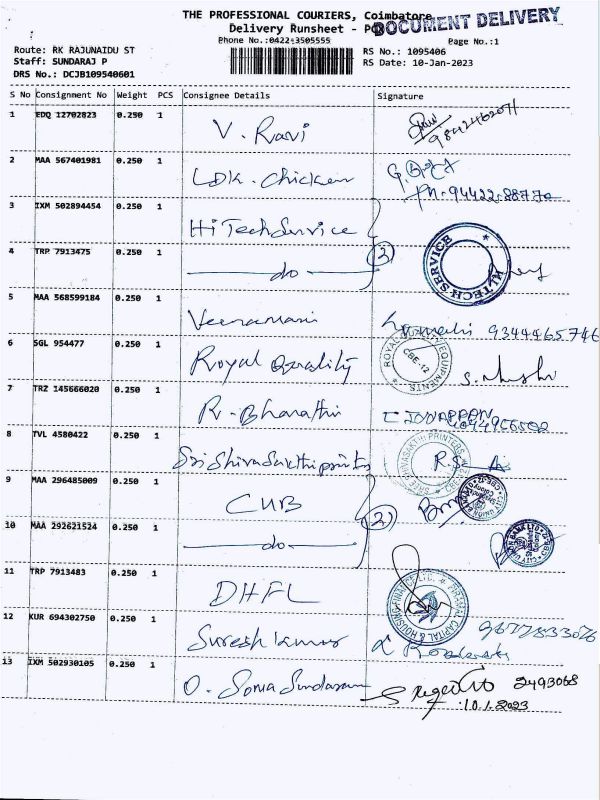 THE PROFESSIONAL COURIERS, Coimbatore
DOCUMENT DELIVERY
Delivery Runsheet -
Phone No.:0422-3505555
Page No.:1
Route: RK RAJUNAIDU ST
RS No.: 1095406
Staff: SUNDARAJ P
RS Date: 10-Jan-2023
DRS No.: DCJB109540601
S No Consignment No Weight PCS Consignee Details Signature
1 EDQ 12702823 0.250 1 V. Ravi 9842462071
2 MAA 567401981 0.250 1 LDK. Chicken
Ph-94422-88770
3 IXM 502894454 0.250 1 Hi Tech Service
4 TRP 7913475 0.250 1 do (3) HI-TECH SERVICE
5 MAA 568599184 0.250 1 Veeramani 9344465746
6 SGL 954477 0.250 1 Royal Quality ROYAL QUALITY EQUIPMENTS CBE-12
7 TRZ 145666020 0.250 1 R. Bharathi
8 TVL 4580422 0.250 1 Sri Shivasakthi prints SREE SHIVASAKTHI PRINTERS R.S
9 MAA 296485009 0.250 1 CUB
10 MAA 292621524 0.250 1 do (2)
11 TRP 7913483 0.250 1 DHFL PIRAMAL CAPITAL & HOUSING FINANCE LTD.
12 KUR 694302750 0.250 1 Suresh kumar 9677833076
13 IXM 502930105 0.250 1 O. Soma Sundaram 2493068
10.1.2023